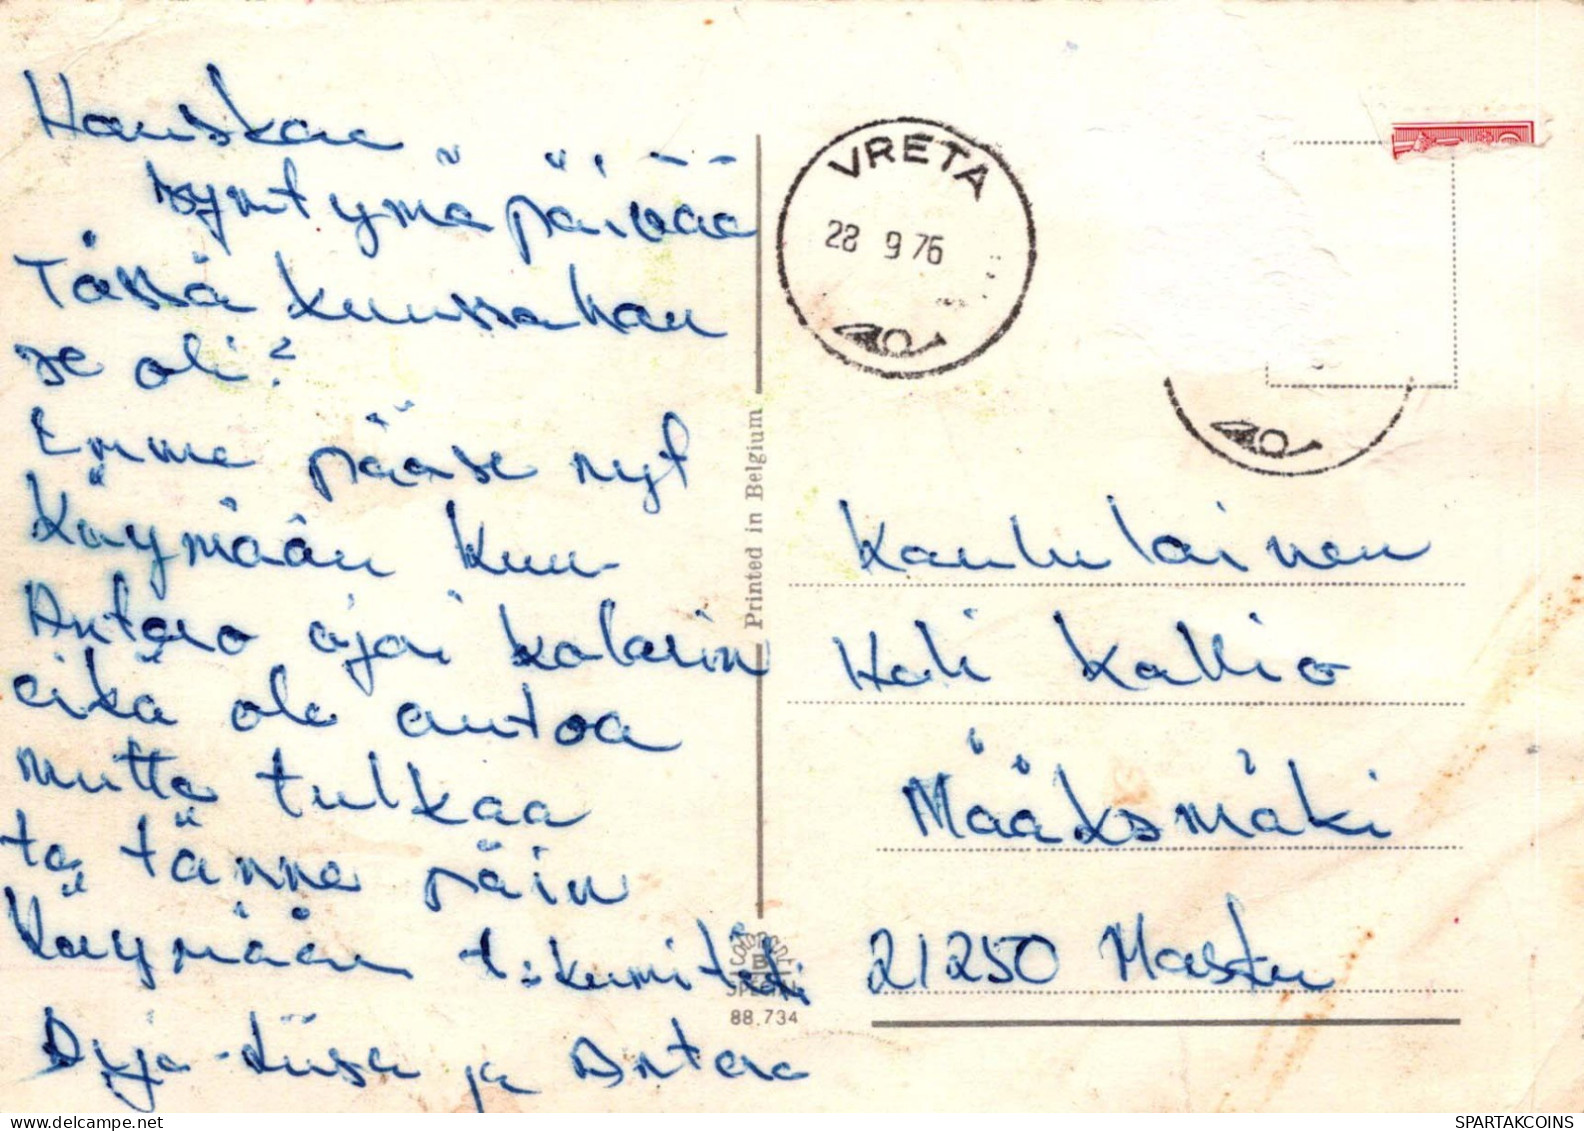 Hauskaa
syntymäpäivää
Tässä kuussahan
se oli?
Emme pääse nyt
käymään kuu-
Antero ajai
eikä ole autoa
mutta tulkaa
te tänne päin
käymään t. kumitäti
Arja-Liisa ja Antero
VRETA
28 9 76
Printed in Belgium
Colorprint
B
SPECIAL
88.734
Kaululainen
Heli Kallio
Määksmäki
21250 Masku
SPARTAKCOINS